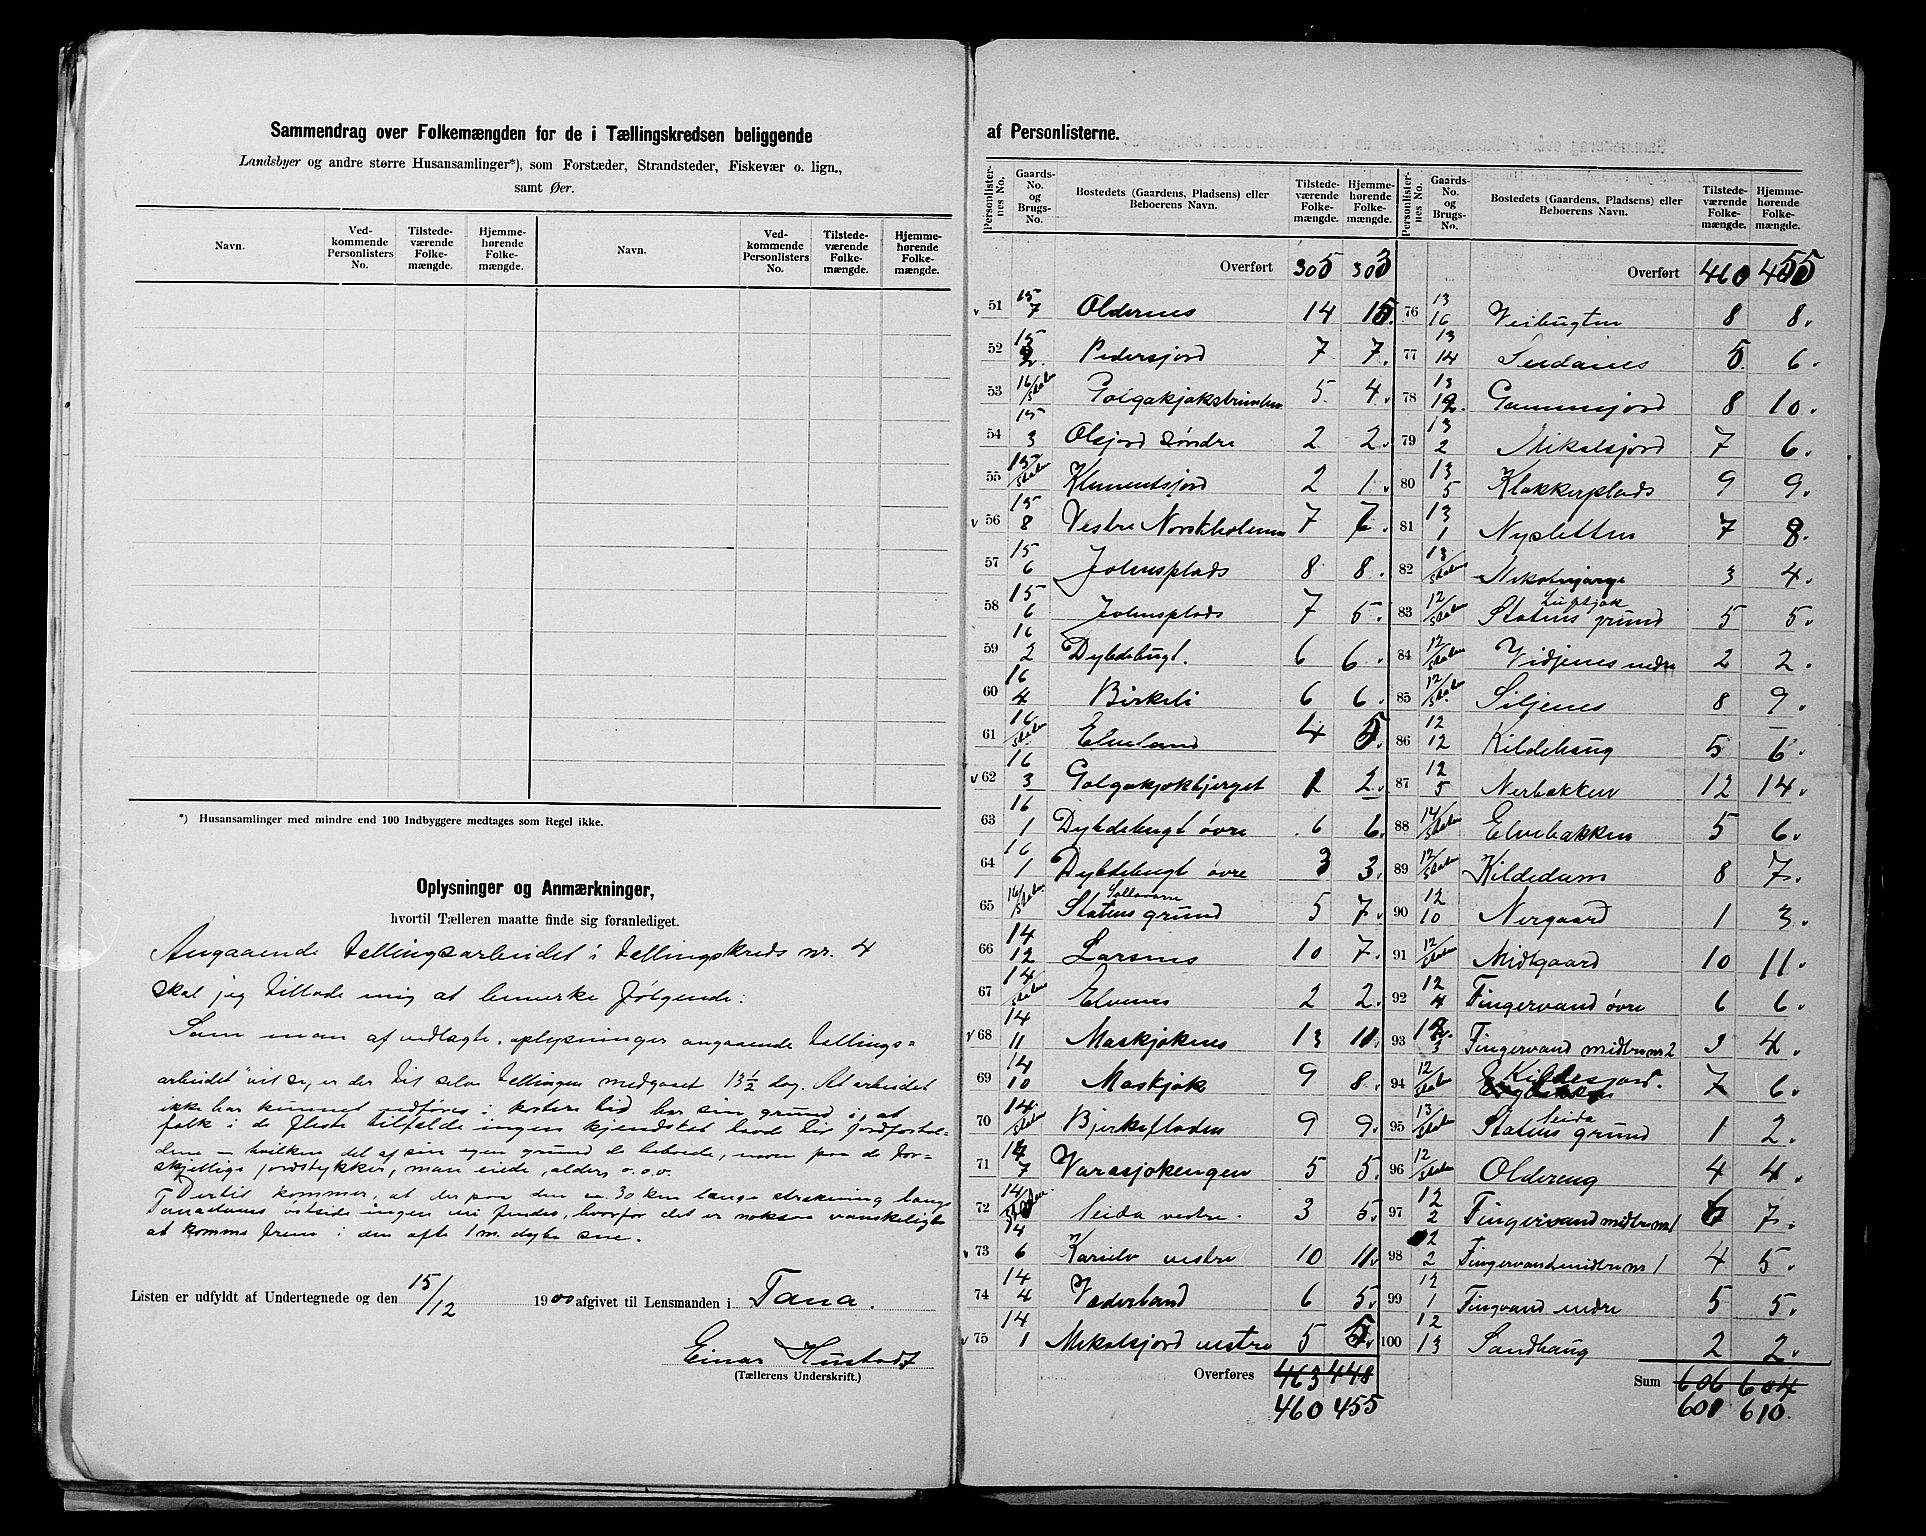 Sammendrag over Folkemængden for de i Tællingskredsen beliggende
Landsbyer og andre større Husansamlinger*), som Forstæder, Strandsteder, Fiskevær o. lign.,
samt Øer.
Navn. Ved-kommende Personlisters No. Tilstede-værende Folke-mængde. Hjemme-hørende Folke-mængde. Navn. Ved-kommende Personlisters No. Tilstede-værende Folke-mængde. Hjemme-hørende Folke-mængde.
*) Husansamlinger med mindre end 100 Indbyggere medtages som Regel ikke.
Oplysninger og Anmærkninger,
hvortil Tælleren maatte finde sig foranlediget.
Angaaende tellingsarbeidet i tellingskreds nr. 4
skal jeg tillade mig at bemerke følgende:
Som man af vedlagte "oplysninger angaaende tellings=
arbeidet" vil se, er der til selve tellingen medgaaet 13 1/2 dag. At arbeidet
ikke har kunnet udføres i kortere tid har sin grund i, at
folk i de fleste tilfælde ingen kjendskab havde til jordforhol-
dene — hvilken del af sin egen grund de beboede, navn paa de for-
skjellige jordstykker, man eiede, alder, o.s.v.
Dertil kommer, at der paa den ca. 30 km lange strækning langs
Tanaelvens østside ingen vei findes, hvorfor det er noksaa vanskeligt
at komme frem i den ofte 1 m. dybe sne.
Listen er udfyldt af Undertegnede og den 15/12 1900 afgivet til Lensmanden i Tana.
Einar Hustadt
(Tællerens Underskrift.)
af Personlisterne.
Personlister-nes No. Gaards-No. og Brugs-No. Bostedets (Gaardens, Pladsens) eller Beboerens Navn. Tilstede-værende Folke-mængde. Hjemme-hørende Folke-mængde.
Overført 305 303
51 15/7 Oldernes 14 15
52 15/2 Pedersjord 7 7
53 16/Staten 5 4
54 15/3 Olsjord søndre 2 2
55 15/Staten Klementsjord 2 1
56 15/8 Vestre Norskholmen 7 7
57 15/6 Johnsplads 8 8
58 15/6 Johnsplads 7 5
59 16/2 Dybdebugt. 6 6
60 16/4 Birkeli 6 6
61 16/Staten Elveland 4 5
62 16/3 Golgakjokbjerget 1 2
63 16/1 Dybdebugt øvre 6 6
64 16/1 Dybdebugt øvre 3 3
65 16/Staten Statens grund 5 7
66 14/12 Larsnes 10 7
67 14/Staten Elvenes 2 2
68 14/11 Maskjoknes 13 11
69 14/10 Maskjok 9 8
70 14/Staten Bjerkefladen 9 9
71 14/7 Varasjokengen 5 5
72 14/Staten Seida vestre 3 5
73 14/6 Karielv vestre 10 11
74 14/4 Væderland 6 5
75 14/1 Mikalsjord vestre 5 5
Overføres 463 448
460 455
Personlister-nes No. Gaards-No. og Brugs-No. Bostedets (Gaardens, Pladsens) eller Beboerens Navn. Tilstede-værende Folke-mængde. Hjemme-hørende Folke-mængde.
Overført 460 455
76 13/16 Veibugten 8 8
77 13/14 Seidanes 5 6
78 13/12 Gammejord 8 10
79 13/2 Mikalsjord 7 6
80 13/5 Klokkerplads 9 9
81 13/1 Nysletten 7 8
82 13/Staten 3 4
83 12/Staten Luftjok Statens grund 5 5
84 12/Staten Vidjenes nedre 2 2
85 12/Staten Siljenes 8 9
86 12/12 Kildehaug 5 6
87 12/5 Nerbakken 12 14
88 12/Staten Elvebakken 5 6
89 12/Staten Kildedam 8 7
90 12/10 Nergaard 1 3
91 12/Staten Midtgaard 10 11
92 12/4 Fingervand øvre 6 6
93 12/3 Fingervand midtre nr 2 3 4
94 12/Staten Kildesjord. 7 6
95 13/Staten Seida Statens grund 1 2
96 12/Staten Oldereng 4 4
97 12/2 Fingervand midtre nr 1 6 7
98 12/2 Fingervand midtre nr 1 4 5
99 12/1 Fingvand nedre 5 5
100 12/13 Sandhaug 2 2
Sum 606 604
601 610.